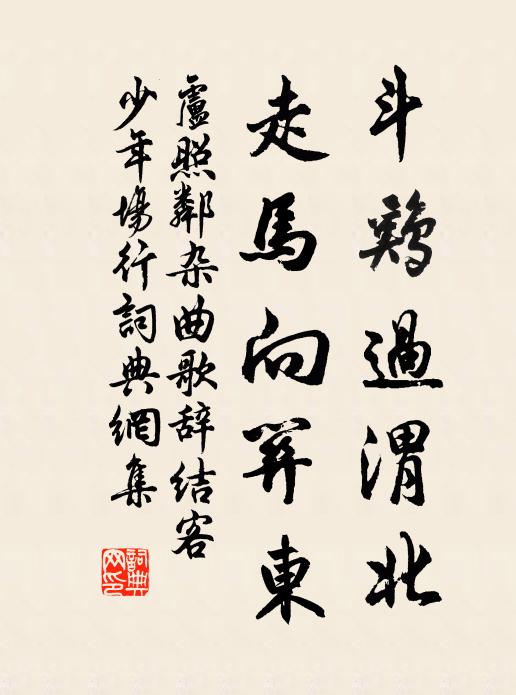 斗鷄過渭北
走馬向關東
盧照鄰杂曲歌辞結客
少年場行詞典網集
詞典
网印